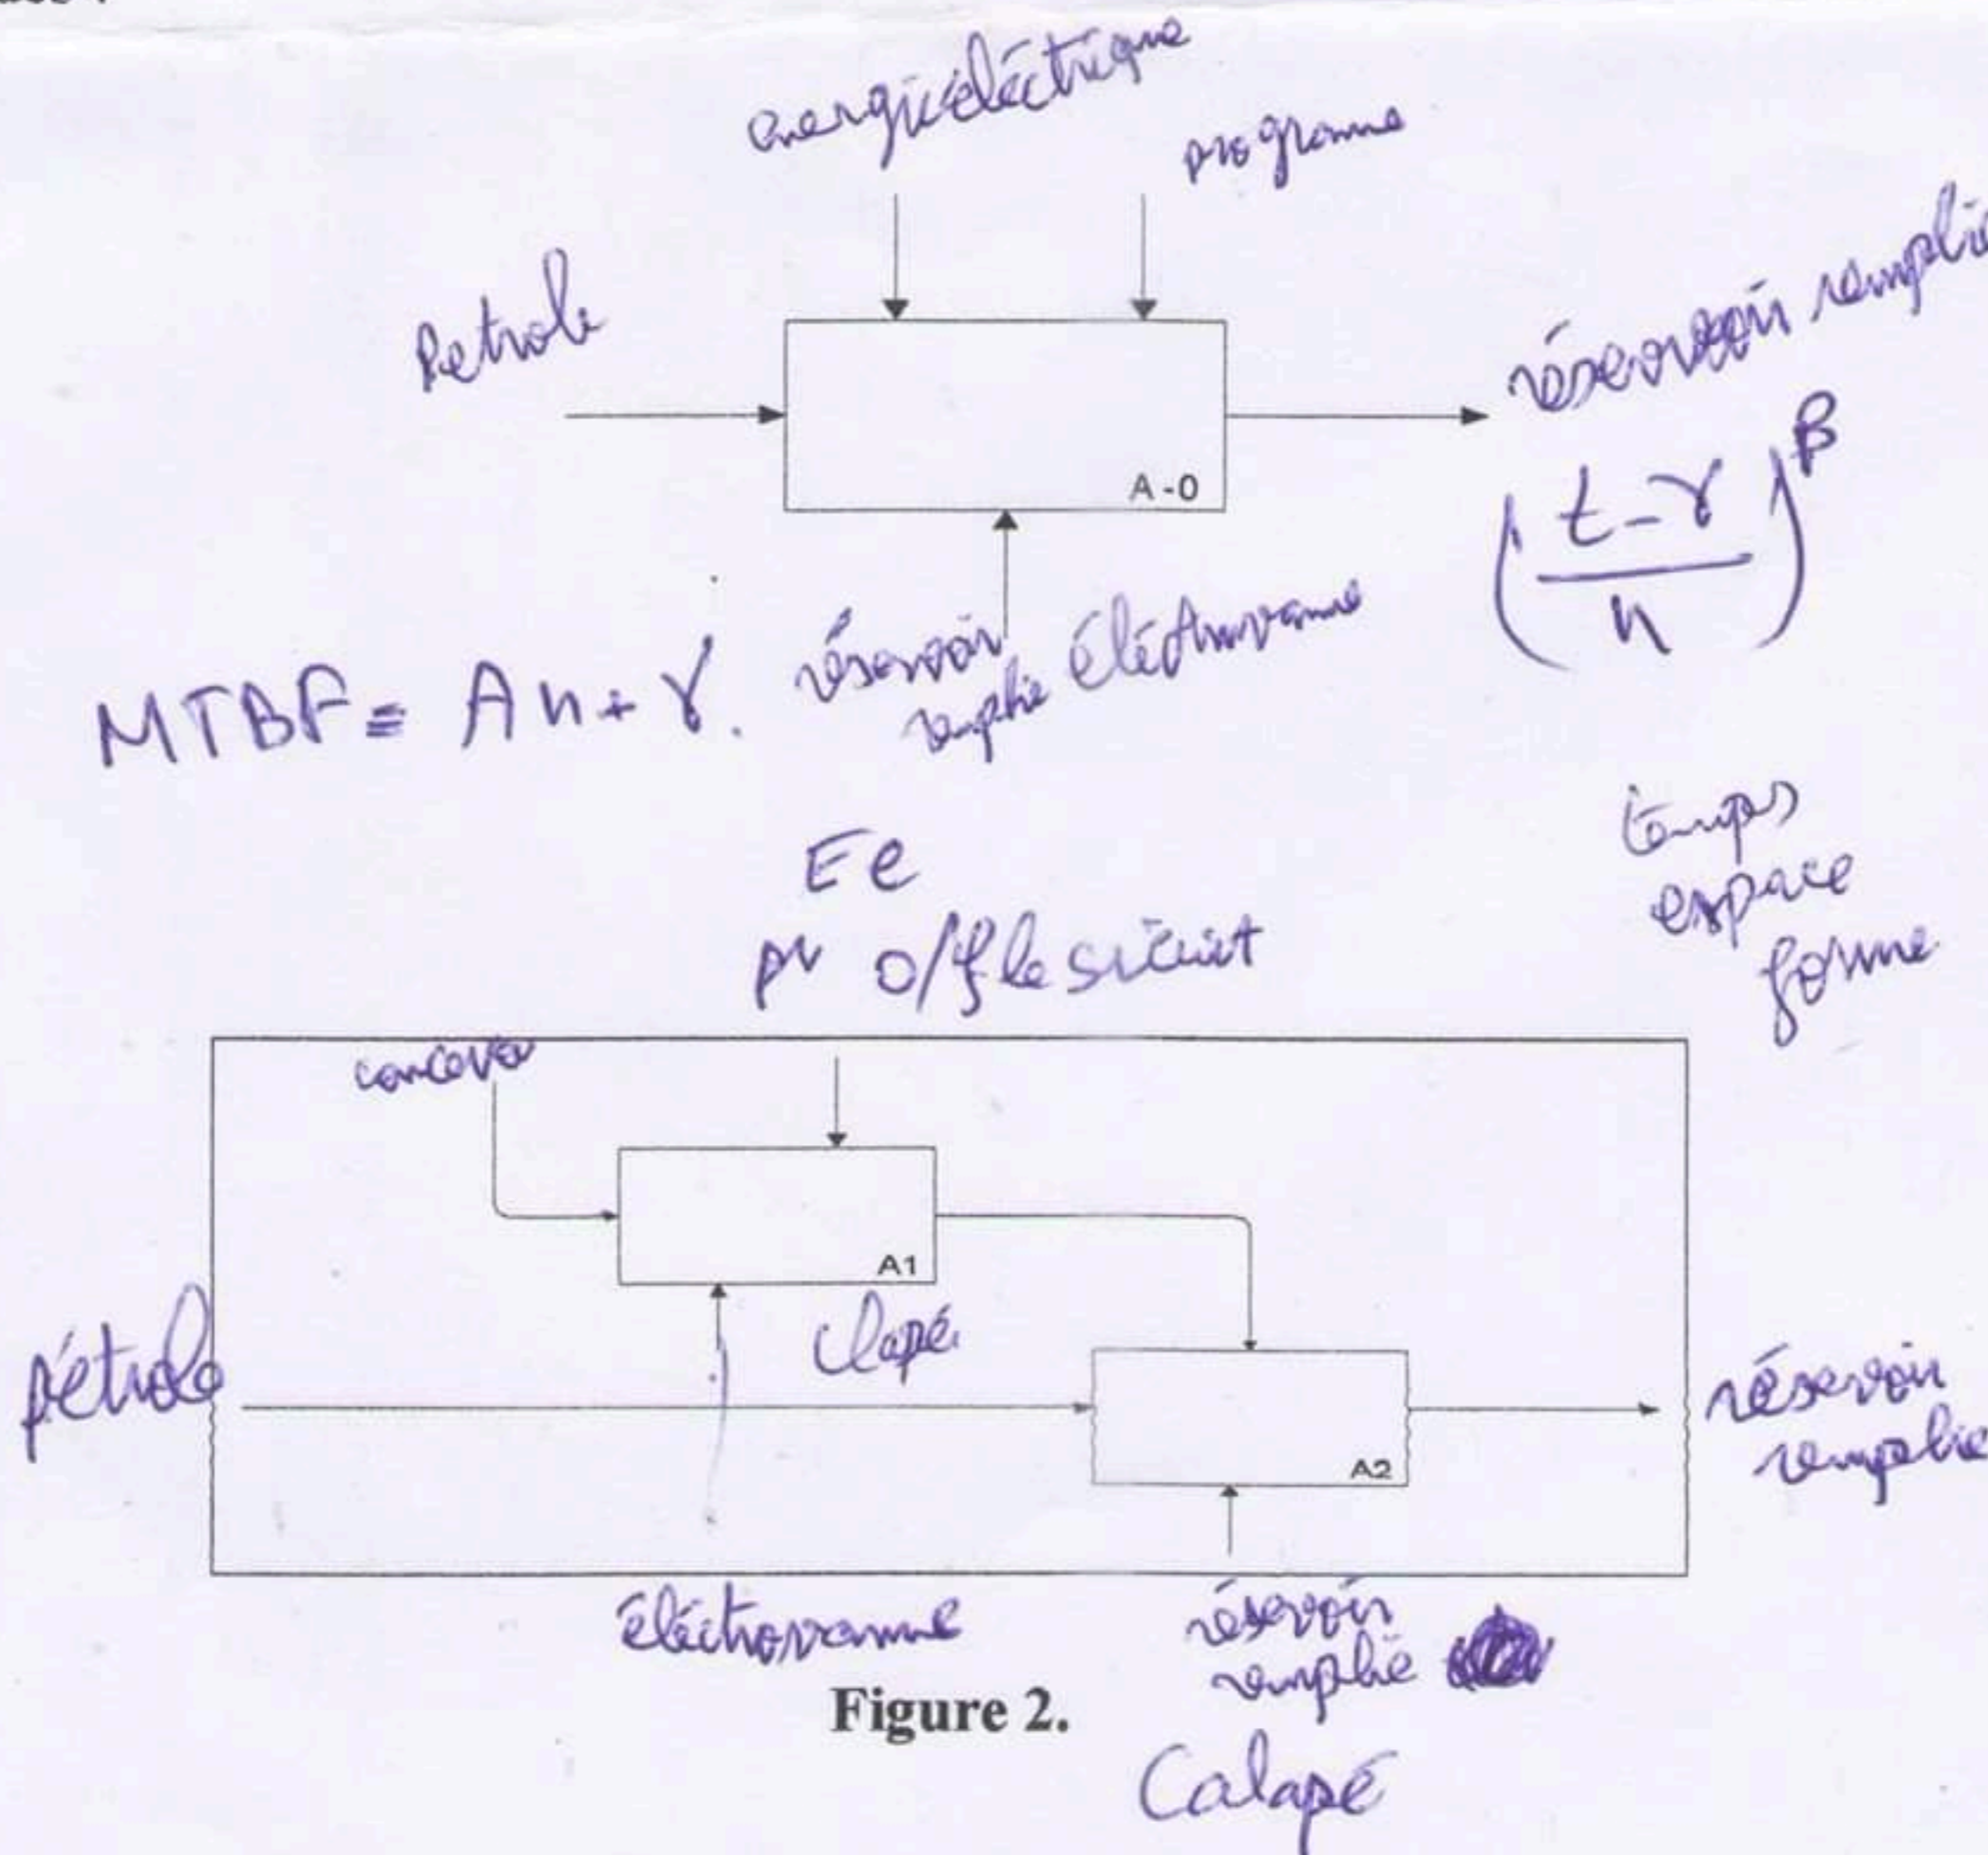 energie éléctrique
programme
Petrole
réservoir remplie
A-0
(t-γ/η)^β
réservoir
remplie éléctrovanne
MTBF = Aη + γ.
temps
espace
forme
Ee
pr o/f le
A1
Clapé
pétrole
A2
réservoir
remplie
éléctrovanne
réservoir
remplie
Figure 2.
Calapé